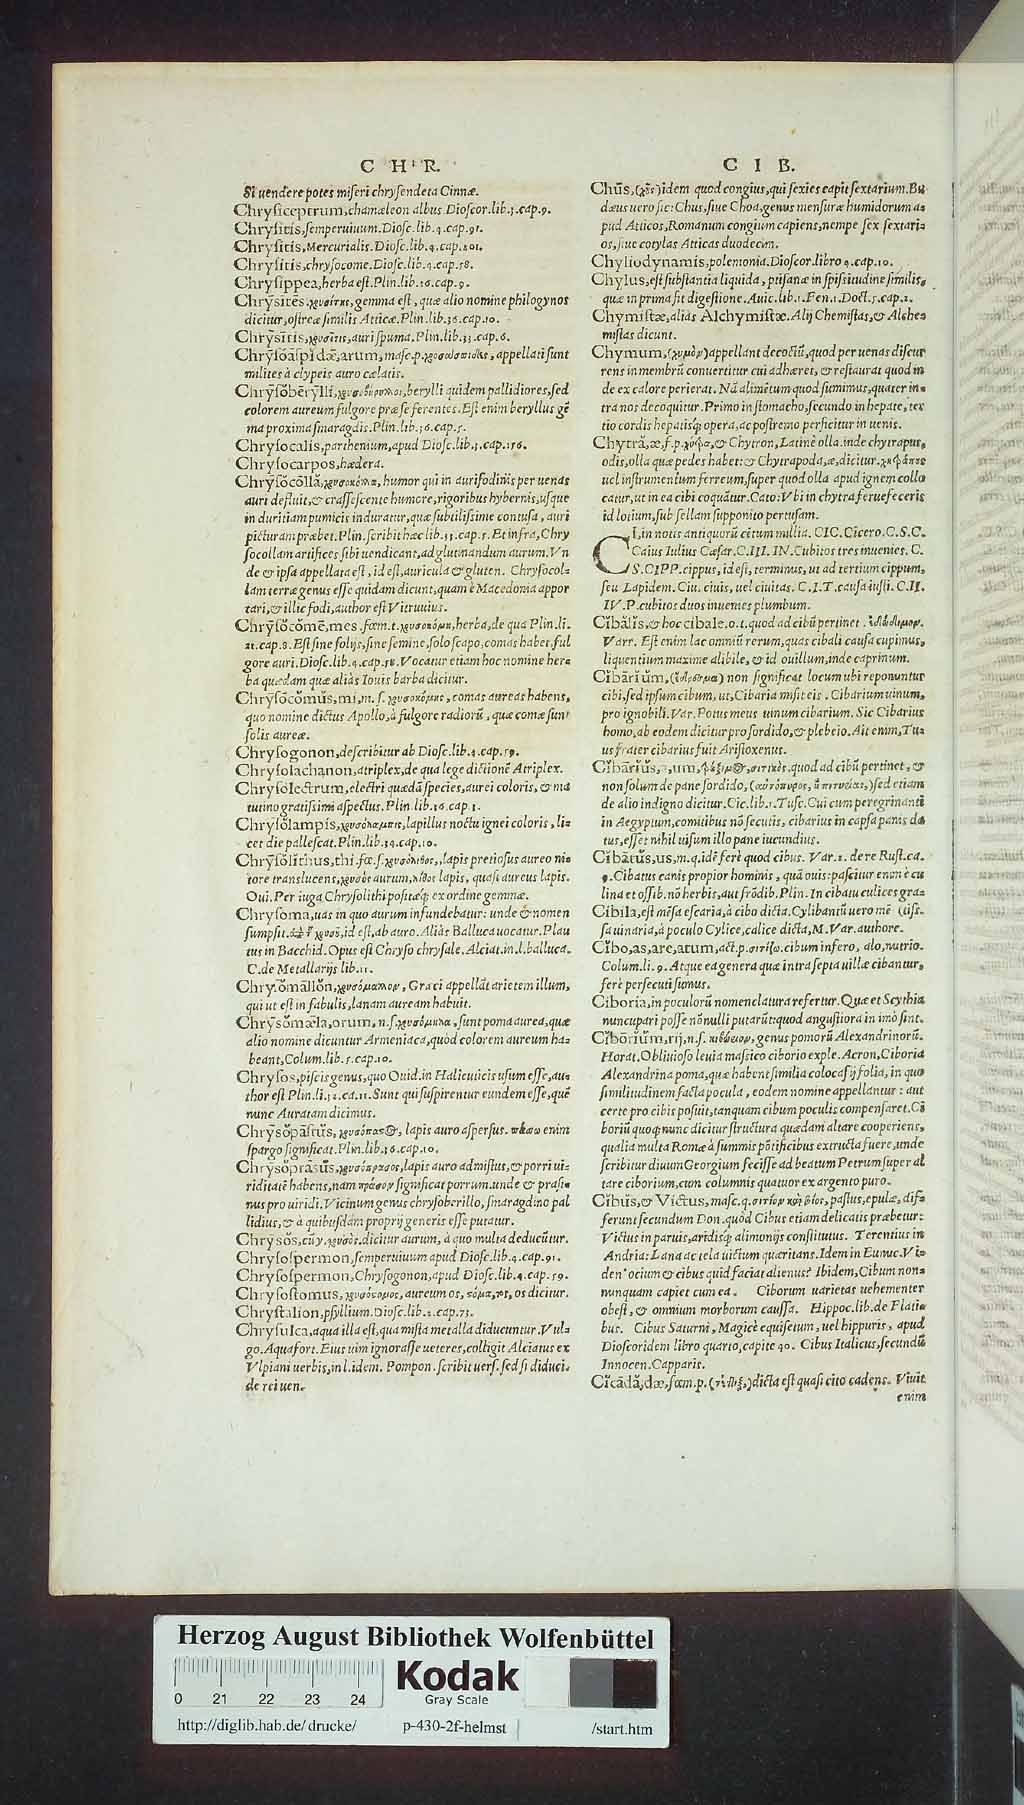 C H R.
Si uendere potes miseri chrysendeta Cinnæ.
Chrysiceptrum, chamæleon albus Dioscor. lib. 3. cap. 9.
Chrysitis, semperuiuum. Diosc. lib. 4. cap. 91.
Chrysitis, Mercurialis. Diosc. lib. 4. cap. 201.
Chrysitis, chrysocome. Diosc. lib. 4. cap. 58.
Chrysippea, herba est. Plin. lib. 26. cap. 9.
Chrysites, χρυσίτης, gemma est, quæ alio nomine philogynos
dicitur, ostreæ similis Atticæ. Plin. lib. 36. cap. 10.
Chrysitis, χρυσῖτις, auri spuma. Plin. lib. 33. cap. 6.
Chrysoaspidæ, arum, masc. p. appellati sunt
milites à clypeis auro cælatis.
Chrysoberylli, berylli quidem pallidiores, sed
colorem aureum fulgore præ se ferentes. Est enim beryllus gē
ma proxima smaragdis. Plin. lib. 36. cap. 5.
Chrysocalis, parthenium, apud Diosc. lib. 3. cap. 156.
Chrysocarpos, hædera.
Chrysocolla, χρυσοκόλλα, humor qui in aurifodinis per uenas
auri defluit, & crassescente humore, rigoribus hybernis, usque
in duritiam pumicis induratur, quæ subtilissime contusa, auri
picturam præbet. Plin. scribit hæc lib. 33. cap. 5. Et infra, Chry
socollam artifices sibi uendicant, ad glutinandum aurum. Vn
de & ipsa appellata est, id est, auricula & gluten. Chrysocol-
lam terræ genus esse quidam dicunt, quam è Macedonia appor
tari, & illic fodi, author est Vitruuius.
Chrysocome, mes. fœm. t. χρυσοκόμη, herba, de qua Plin. li.
21. cap. 8. Est sine folijs, sine semine, solo scapo, comas habet, ful
gore auri. Diosc. lib. 4. cap. 58. Vocatur etiam hoc nomine her-
ba quædam quæ aliàs Iouis barba dicitur.
Chrysocomus, mi, m. s. χρυσοκόμος, comas aureas habens,
quo nomine dictus Apollo, à fulgore radiorū, quæ comæ sunt
solis aureæ.
Chrysogonon, describitur ab Diosc. lib. 4. cap. 59.
Chrysolachanon, atriplex, de qua lege dictionē Atriplex.
Chrysolectrum, electri quædā species, aurei coloris, & ma
tutino gratissimi aspectus. Plin. lib. 36 cap 1.
Chrysolampis, χρυσόλαμπις, lapillus noctu ignei coloris, li-
cet die pallescat. Plin. lib. 34. cap. 10.
Chrysolithus, thi. fœ. s. χρυσόλιθος, lapis pretiosus aureo ni-
tore translucens, χρυσὸς aurum, λίθος lapis, quasi aureus lapis.
Oui. Per iuga Chrysolithi positæq; ex ordine gemmæ.
Chrysoma, uas in quo aurum infundebatur: unde & nomen
sumpsit. id est, ab auro. Aliàs Balluca uocatur. Plau
tus in Bacchid. Opus est Chryso chrysale. Alciat. in. l. balluca.
C. de Metallarijs lib. 11.
Chrysomallon, χρυσόμαλλον, Græci appellāt arietem illum,
qui ut est in fabulis, lanam auream habuit.
Chrysomæla, orum, n. s. χρυσόμηλα, sunt poma aurea, quæ
alio nomine dicuntur Armeniaca, quòd colorem aureum ha-
beant, Colum. lib. 5. cap. 10.
Chrysos, piscis genus, quo Ouid. in Halieuticis usum esse, au-
thor est Plin. li. 32. ca. 11. Sunt qui suspirentur eundem esse, quē
nunc Auratam dicimus.
Chrysopastus, χρυσόπαστος, lapis auro aspersus. πάσσω enim
spargo significat. Plin. lib. 36. cap. 10.
Chrysoprasus, χρυσόπρασος, lapis auro admistus, & porri ui-
riditatē habens, nam πράσον significat porrum. unde & prasi-
nus pro uiridi. Vicinum genus chrysoberillo, smaragdino pal
lidius, & à quibusdam proprij generis esse putatur.
Chrysos, χρυσὸς. dicitur aurum, à quo multa deducūtur.
Chrysospermon, semperuiuum apud Diosc. lib. 4. cap. 91.
Chrysospermon, Chrysogonon, apud Diosc. lib. 4. cap. 59.
Chrysostomus, χρυσόστομος, aureum os, στόμα, τος, os dicitur.
Chrystalion, psyllium. Diosc. lib. 2. cap. 73.
Chrysulca, aqua illa est, qua mista metalla diducuntur. Vul-
go. Aquafort. Eius uim ignorasse ueteres, colligit Alciatus ex
Vlpiani uerbis, in l. idem. Pompon. scribit uers. sed si diduci.
de rei uen.
C I B.
Chus, (χοῦς) idem quod congius, qui sexies capit sextarium. Bu
dæus uero sic: Chus, siue Choa, genus mensuræ humidorum a-
pud Atticos, Romanum congium capiens, nempe sex sextari-
os, siue cotylas Atticas duodecim.
Chyliodynamis, polemonia. Dioscor libro 4. cap. 10.
Chylus, est substantia liquida, ptisanæ in spissitudine similis,
quæ in prima fit digestione. Auic. lib. 1. Fen. 1. Doct. 5. cap. 2.
Chymistæ, aliàs Alchymistæ. Alij Chemistas, & Alche-
mistas dicunt.
Chymum, (χυμὸν) appellant decoctū, quod per uenas discur
rens in membrū conuertitur cui adhæret, & restaurat quod in
de ex calore perierat. Nā alimētum quod sumimus, quater in-
tra nos decoquitur. Primo in stomacho, secundo in hepate, ter
tio cordis hepatisq; opera, ac postremo perficitur in uenis.
Chytra, æ, f. p. χύτρα, & Chytron, Latinè olla. inde chytropus,
odis, olla quæ pedes habet: & Chytrapoda, æ, dicitur.
uel instrumentum ferreum, super quod olla apud ignem collo
catur, ut in ea cibi coquātur. Cato: Vbi in chytra feruefeceris
id lotium, sub sellam supponito pertusam.
CI, in notis antiquorū cētum millia. CIC. Cicero. C. S. C.
Caius Iulius Cæsar. C. III. IN. Cubitos tres inuenies. C.
S. CIPP. cippus, id est, terminus, ut ad tertium cippum,
seu Lapidem. Ciu. ciuis, uel ciuitas. C. I. T. causa iusti. C. II.
IV. P. cubitos duos inuenies plumbum.
Cibalis, & hoc cibale. o. t. quod ad cibū pertinet.
Varr. Est enim lac omniū rerum, quas cibali causa cupimus,
liquentium maxime alibile, & id ouillum, inde caprinum.
Cibarium, non significat locum ubi reponuntur
cibi, sed ipsum cibum, ut, Cibaria misit eis. Cibarium uinum,
pro ignobili. Var. Potus meus uinum cibarium. Sic Cibarius
homo, ab eodem dicitur pro sordido, & plebeio. Ait enim, Tu-
us frater cibarius fuit Aristoxenus.
Cibarius, a, um, quod ad cibū pertinet, &
non solum de pane sordido, sed etiam
de alio indigno dicitur. Cic. lib. 5. Tusc. Cui cum peregrinanti
in Aegyptum, comitibus nō secutis, cibarius in capsa panis da
tus, esset nihil uisum illo pane iucundius.
Cibatus, us, m. q. idē ferè quod cibus. Var. 2. de re Rust. ca.
9. Cibatus canis propior hominis, quā ouis: pascitur enim è cu
lina et ossib. nō herbis, aut frōdib. Plin. In cibatu culices gra-
Cibila, est mēsa escaria, à cibo dicta. Cylibantū uero mē (tiss.
sa uinaria, à poculo Cylice, calice dicta, M. Var. authore.
Cibo, as, are, atum, act. p. σιτίζω. cibum infero, alo, nutrio.
Colum. li. 9. Atque ea genera quæ intra septa uillæ cibantur,
ferè persecuti sumus.
Ciboria, in poculorū nomenclatura refertur. Quæ et Scythia
nuncupari posse nōnulli putarūt: quod angustiora in imò sint.
Ciborium, rij, n. s. κιβώριον, genus pomorū Alexandrinorū.
Horat. Obliuioso leuia massico ciborio exple. Acron, Ciboria
Alexandrina poma, quæ habent similia colocasij folia, in quo
similitudinem facta pocula, eodem nomine appellantur: aut
certe pro cibis posuit, tanquam cibum poculis compensaret. Ci
boriū quoq; nunc dicitur structura quædam altare cooperiens,
qualia multa Romæ à summis pōtificibus extructa fuere, unde
scribitur diuum Georgium fecisse ad beatum Petrum super al
tare ciborium, cum columnis quatuor ex argento puro.
Cibus, & Victus, masc. q. σιτίον καὶ βίος, pastus, epulæ, dif-
ferunt secundum Don. quòd Cibus etiam delicatis præbetur:
Victus in paruis, aridisq; alimonijs constitutus. Terentius in
Andria: Lana ac tela uictum quæritans. Idem in Eunuc. Vi-
den' ocium & cibus quid faciat alienus? Ibidem, Cibum non-
nunquam capiet cum ea. Ciborum uarietas uehementer
obest, & omnium morborum caussa. Hippoc. lib. de Flati-
bus. Cibus Saturni, Magicè equisetum, uel hippuris, apud
Dioscoridem libro quarto, capite 40. Cibus Italicus, secundū
Innocen. Capparis.
Cicada, dæ, fœm. p. (τέττιξ,) dicta est quasi cito cadens. Viuit
enim
Herzog August Bibliothek Wolfenbüttel
Kodak
Gray Scale
0 21 22 23 24
http://diglib.hab.de/drucke/ p-430-2f-helmst /start.htm